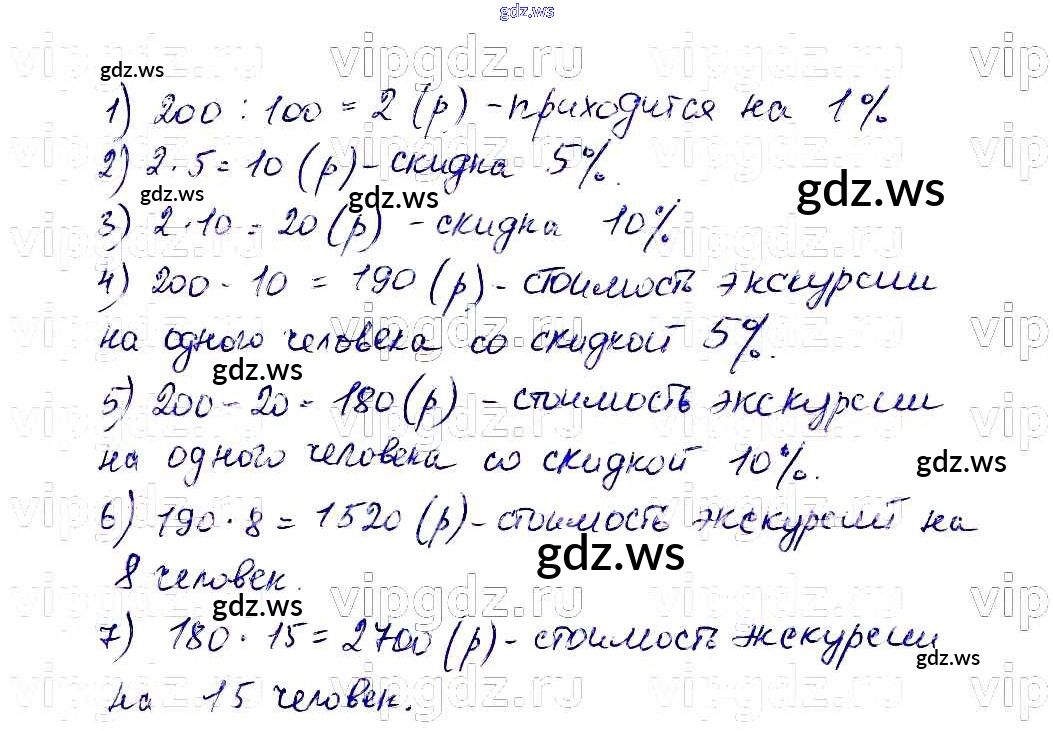 gdz.ws
gdz.ws
1) 200 : 100 = 2 (р) - приходится на 1%
2) 2 · 5 = 10 (р) - скидка 5%.
gdz.ws
gdz.ws gdz.ws
3) 2 · 10 = 20 (р) - скидка 10%
4) 200 - 10 = 190 (р) - стоимость экскурсии
на одного человека со скидкой 5%.
gdz.ws
5) 200 - 20 = 180 (р) - стоимость экскурсии
на одного человека со скидкой 10%.
gdz.ws
6) 190 · 8 = 1520 (р) - стоимость экскурсий на
gdz.ws
8 человек.
gdz.ws
7) 180 · 15 = 2700 (р) - стоимость экскурсии
gdz.ws
на 15 человек.
vipgdz.ru